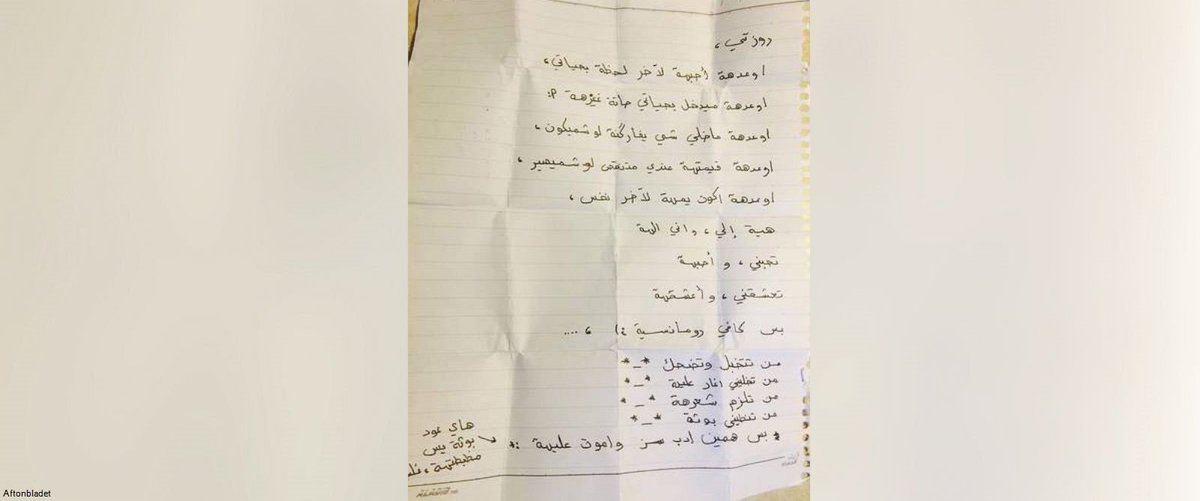 دوزتي ،
اوعدهة أحبهة لآخر لحظة بحياتي ،
اوعدهة ميدخل بحياتي حاتة غيرهة :P
اوعدهة ماخلي شي يفاركنة لو شميكون ،
اوعدهة قيمتهة عندي متنقص لو شميصير ،
اوعدهة اكون يمهة لآخر نفس ،
هية إلي ، واني الهة
تحبني ، و أحبهة
تعشقني ، و أعشقهة
بس كافي رومانسية :) ، ....
من تتخبل وتضحك *_*
من تخليني اغار علية *_*
من تلزم شعرهة *_*
من تنطيني بوثة *_*
* بس همين ادب سز واموت عليهة :*
هاي عود
بوثة بس
مظبطتهة ،
Aftonbladet